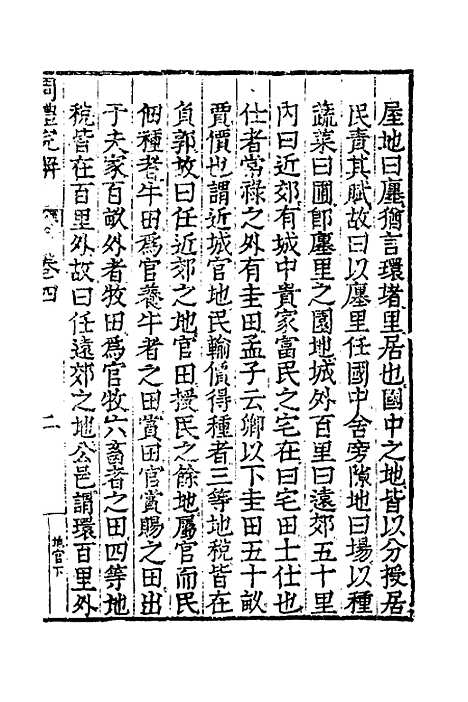 屋地曰廛猶言環堵里居也國中之地皆以分授居
民責其賦故曰以廛里任國中舍旁隙地曰場以種
蔬菜曰圃卽廛里之園地城外百里曰遠郊五十里
內曰近郊有城中貴家富民之宅在曰宅田士仕也
仕者常祿之外有圭田孟子云卿以下圭田五十畝
賈價也謂近城官地民輸價得種者三等地稅皆在
負郭故曰任近郊之地官田授民之餘地屬官而民
佃種者牛田爲官養牛者之田賞田官賞賜之田出
于夫家百畝外者牧田爲官牧六畜者之田四等地
稅皆在百里外故曰任遠郊之地公邑謂環百里外
周禮完解
卷四
二
地官下